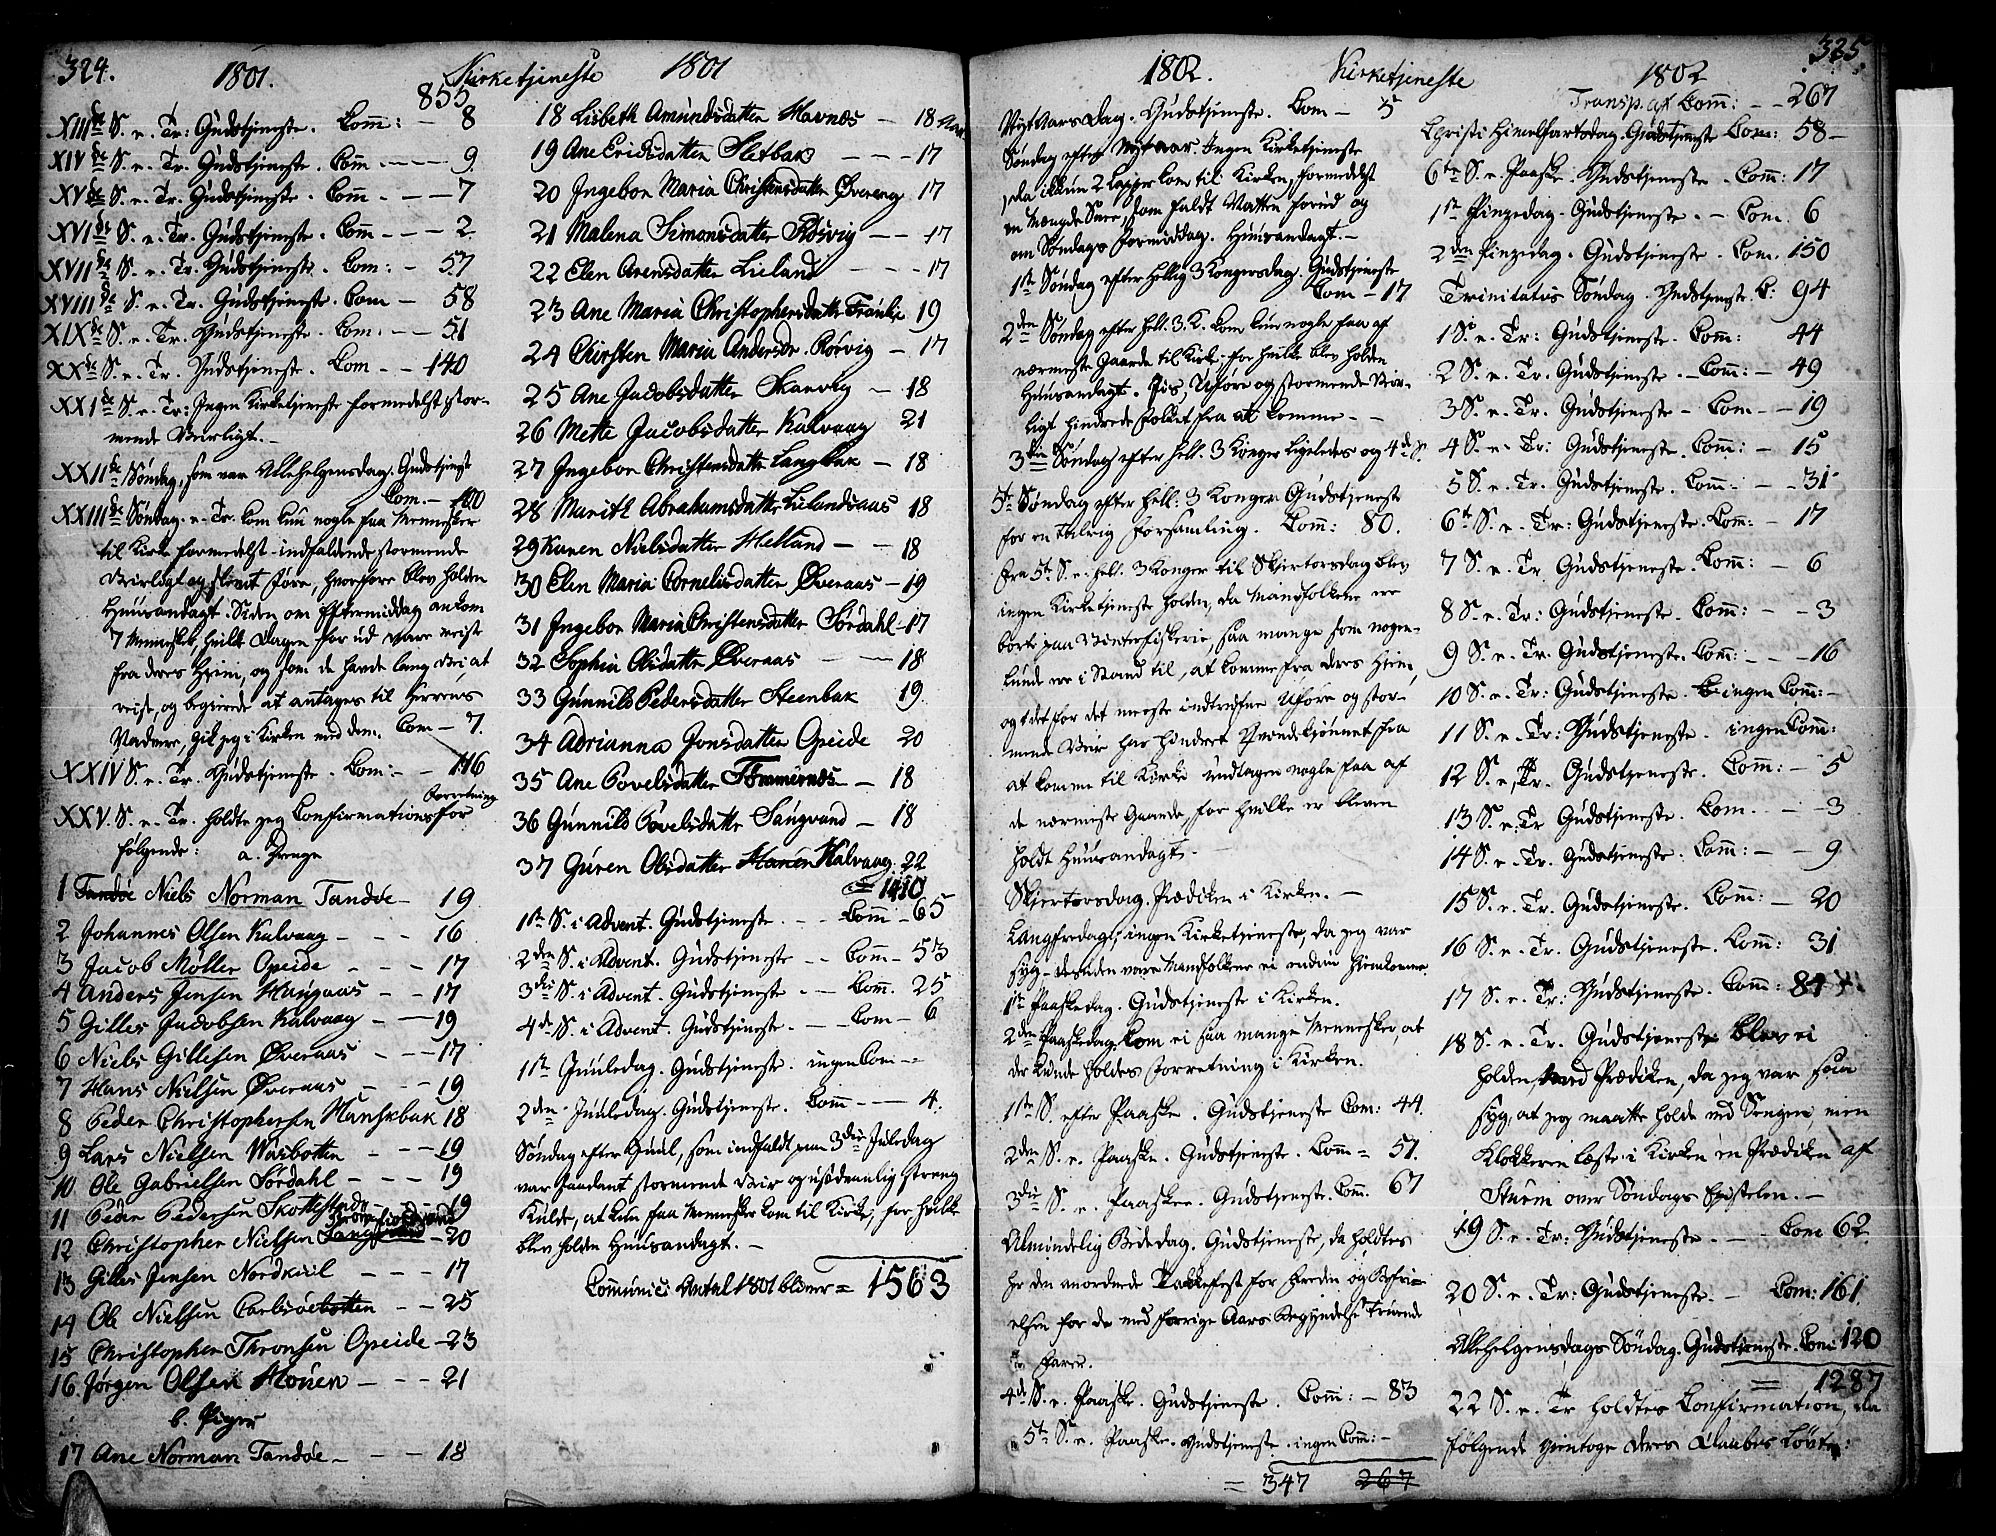 324.
1801. Kirketjeneste 1801
855
XIII de S. e. Tr: Gudstjeneste. Com: — 8
XIV de S. e. Tr. Gudstjeneste. Com — 9
XV de S. e. Tr. Gudstjeneste. Com — 7
XVI de S. e. Tr. Gudstjeneste. Com — 2
XVII de S. e. Tr. Gudstjeneste. Com: — 57
XVIII de S. e. Tr. Gudstjeneste. Com — 58
XIX de S. e. Tr. Gudstjeneste. Com: — 51
XX de S. e. Tr. Gudstjeneste. Com — 140
XXI de S. e. Tr: Ingen Kirketjeneste formedelst stor-
mende Veirligt. —
XXII de Søndag, som var Allehelgensdag. Gudstjenest
Com. — 100
XXIII de Søndag. e. Tr. kom kun nogle faa Mennesker
til Kirke formedelst indfaldende stormende
Veirligt og Føre, hvorfore blev holden
Huusandagt. Siden om Eftermiddag ankom
7 Mennesker, hvilke Dagen for ud vare reist
fra deres Hjem, og som de havde lang Vei, at
reise, og begierede at antages til Herrens
Nadvere, gik jeg i Kirken med dem. Com — 7.
XXIV S. e. Tr. Gudstjeneste. Com: — 116
XXV. S. e. Tr. holdte jeg Confirmations forretning for
følgende: a. Drenge
1 Niels Norman Tandøe — 19
2 Johannes Olsen Kalvaag — 16
3 Jacob Møller Opeide — 17
4 Anders Jensen Haugaas — 17
5 Gilles Jacobsen Kalvaag — 19
6 Niels Gillesen Øveraas — 17
7 Hans Nielsen Øveraas — 19
8 Peder Christophersen Manskbak 18
9 Lars Nielsen Wasbotten — 19
10 Ole Gabrielsen Sørdahl — 19
11 Peder Pedersen Skottestad — 19
12 Christopher Nielsen — 20
13 Gilles Jensen Nordkiil — 17
14 Ole Nielsen Carlsøebotten — 25
15 Christopher Thronsen Opeide — 23
16 Jørgen Olsen Mouen — 21
b. Piger
17 Ane Norman Tandøe — 18
18 Lisbeth Amundsdatter Mavnes — 18 Aar
19 Ane Erichsdatter Sletbak — 17
20 Ingebor Maria Christensdatter Øvereng 17
21 Malena Simonsdatter Rösvig — 17
22 Elen Arensdatter Lieland — 17
23 Ane Maria Christophersdatter 19
24 Chirsten Maria Andersdr. Rösvig — 17
25 Ane Jacobsdatter Skarvig — 18
26 Mette Jacobsdatter Kalvaag 21
27 Ingebor Christensdatter Langbak — 18
28 Marith Abrahamsdatter Lielandsaas 18
29 Karen Nielsdatter Helland — 18
30 Elen Maria Cornelisdatter Øveraas — 19
31 Ingebor Maria Christensdatter Sørdahl — 17
32 Sophia Olsdatter Øveraas — 18
33 Gunnild Pedersdatter Steenbak 19
34 Adrianna Jonsdatter Opeide 20
35 Ane Povelsdatter Tømmernes — 18
36 Gunnild Povelsdatter Sangvand — 18
37 Guren Olsdatter Kalvaag. 22
= 1410
1ste S. i Advent. Gudstjeneste. — Com — 65
2den S. i Advent. Gudstjeneste — Com — 53
3die S. i Advent. Gudstjeneste. — Com. 25
4de S. i Advent. Gudstjeneste. — Com — 6
1ste Juuledag. Gudstjeneste. ingen Com —
2den Juuledag. Gudstjeneste. Com — 4.
Søndag efter Juul, som indfaldt paa 3die Juledag
var saadant stormende Veir og usædvanlig streng
Kulde, at kun faa Mennesker kom til Kirke, for hvilke
blev holden Huusandagt. —
Communic: Antal 1801 bliver = 1563
325.
1802. Kirketjeneste 1802
Nyt Aars Dag. Gudstjeneste. Com — 5
Søndag efter Nyt aar. Ingen Kirketjeneste
da ikkun 2 Lapper kom til Kirken, formedelst
en Mængde Snee, som faldt Natten forud og
om Søndags Formiddag. Huusandagt. —
1ste Søndag efter Hellig 3 Kongersdag. Gudstjeneste
Com — 17
2den Søndag efter Hell. 3. K. kom kun nogle faa af
nærmeste Gaarde til Kirke for hvilke blev holden
Huusandagt. Iis, Uføre og stormende Veir-
ligt hindrede Folket fra at komme —
3die Søndag efter hell. 3 Konger ligeledes og 4de S.
5te Søndag efter Hell. 3 Konger Gudstjeneste
for en talrig Forsamling. Com: 80.
Fra 5te S. e. hell. 3 Konger til Skiertorsdag blev
ingen Kirketjeneste holden, da Mandfolkene ere
borte paa Vinterfiskerie, saa mange som nogen-
lunde ere i Stand til, at komme fra deres Hjem,
og det for det meeste indtrufne Uføre og stor-
mende Veir har hindret Qvindekjønnet fra
at komme til Kirke undtagen nogle faa af
de nærmeste Gaarde, for hvilke er bleven
holdt Huusandagt. —
Skjertorsdag. Prædiken i Kirken. —
Langfredag, ingen Kirketjeneste, da jeg var
syg — desuden vare Mandfolkene ei endnu hjemkomne
1ste Paaskedag. Gudstjeneste i Kirken.
2den Paaskedag kom ei saa mange Mennesker, at
der kunde holdes Forretning i Kirken.
1ste S. efter Paaske. Gudstjeneste Com: 44.
2den S. e. Paaske. Gudstjeneste. Com = 51.
3die S. e. Paaske. Gudstjeneste. Com. 67
Almindelig Bededag. Gudstjeneste, da holdtes
her den anordnede Takkefest for Freden og Befri-
elsen for de ved forrige Aars Begyndelse truende
Farer.
4de S. e. Paaske. Gudstjeneste. Com: — 83
5te S. e. Paaske. Gudstjeneste. ingen Com: —
= 347 267
Transp. af Com: — 267
Christi Himelfartsdag. Gudstjeneste Com: 58 —
6te S. e. Paaske. Gudstjeneste. Com: 17
1ste Pinzedag. Gudstjeneste. — Com. 6
2den Pinzedag. Gudstjeneste. Com. 150
Trinitatis Søndag. Gudstjeneste. C: 94
1 S. e. Tr: Gudstjeneste. Com: 44
2 S. e. Tr. Gudstjeneste. — Com: — 49
3 S. e. Tr. Gudstjeneste — Com. — 19
4 S. e. Tr: Gudstjeneste. Com: — 15
5 S. e. Tr. Gudstjeneste. Com: — 31
6te S. e. Tr: Gudstjeneste. Com: — 17
7 S. e. Tr Gudstjeneste. Com: — 6
8 S. e. Tr: Gudstjeneste. Com: — 3
9 S. e. Tr. Gudstjeneste. Com: — 16
10 S. e. Tr: Gudstjeneste. ingen Com: —
11 S. e. Tr: Gudstjeneste. ingen Com:
12 S. e. Tr. Gudstjeneste. Com: — 5
13 S. e. Tr Gudstjeneste. Com. — 3
14 S. e. Tr. Gudstjeneste. Com: — 9
15 S. e. Tr. Gudstjeneste. Com: — 20
16 S. e. Tr. Gudstjeneste. Com: 31
17 S. e. Tr: Gudstjeneste. Com: 84
18 S. e. Tr. Gudstjeneste blev ei
holden med Prædiken, da jeg var saa
syg, at jeg maatte holde ved Sengen, men
Klokkeren læste i Kirken en Prædiken af
Sturm over Søndags Epistelen. —
19 S. e. Tr: Gudstjeneste. — Com 62.
20 S. e. Tr: Gudstjeneste. — Com: 161.
Allehelgensdags Søndag. Gudstjeneste. Com: 120
= 1287
22 S. e. Tr holdtes Confirmation, da
følgende igientoge deres Daabes Løvte: